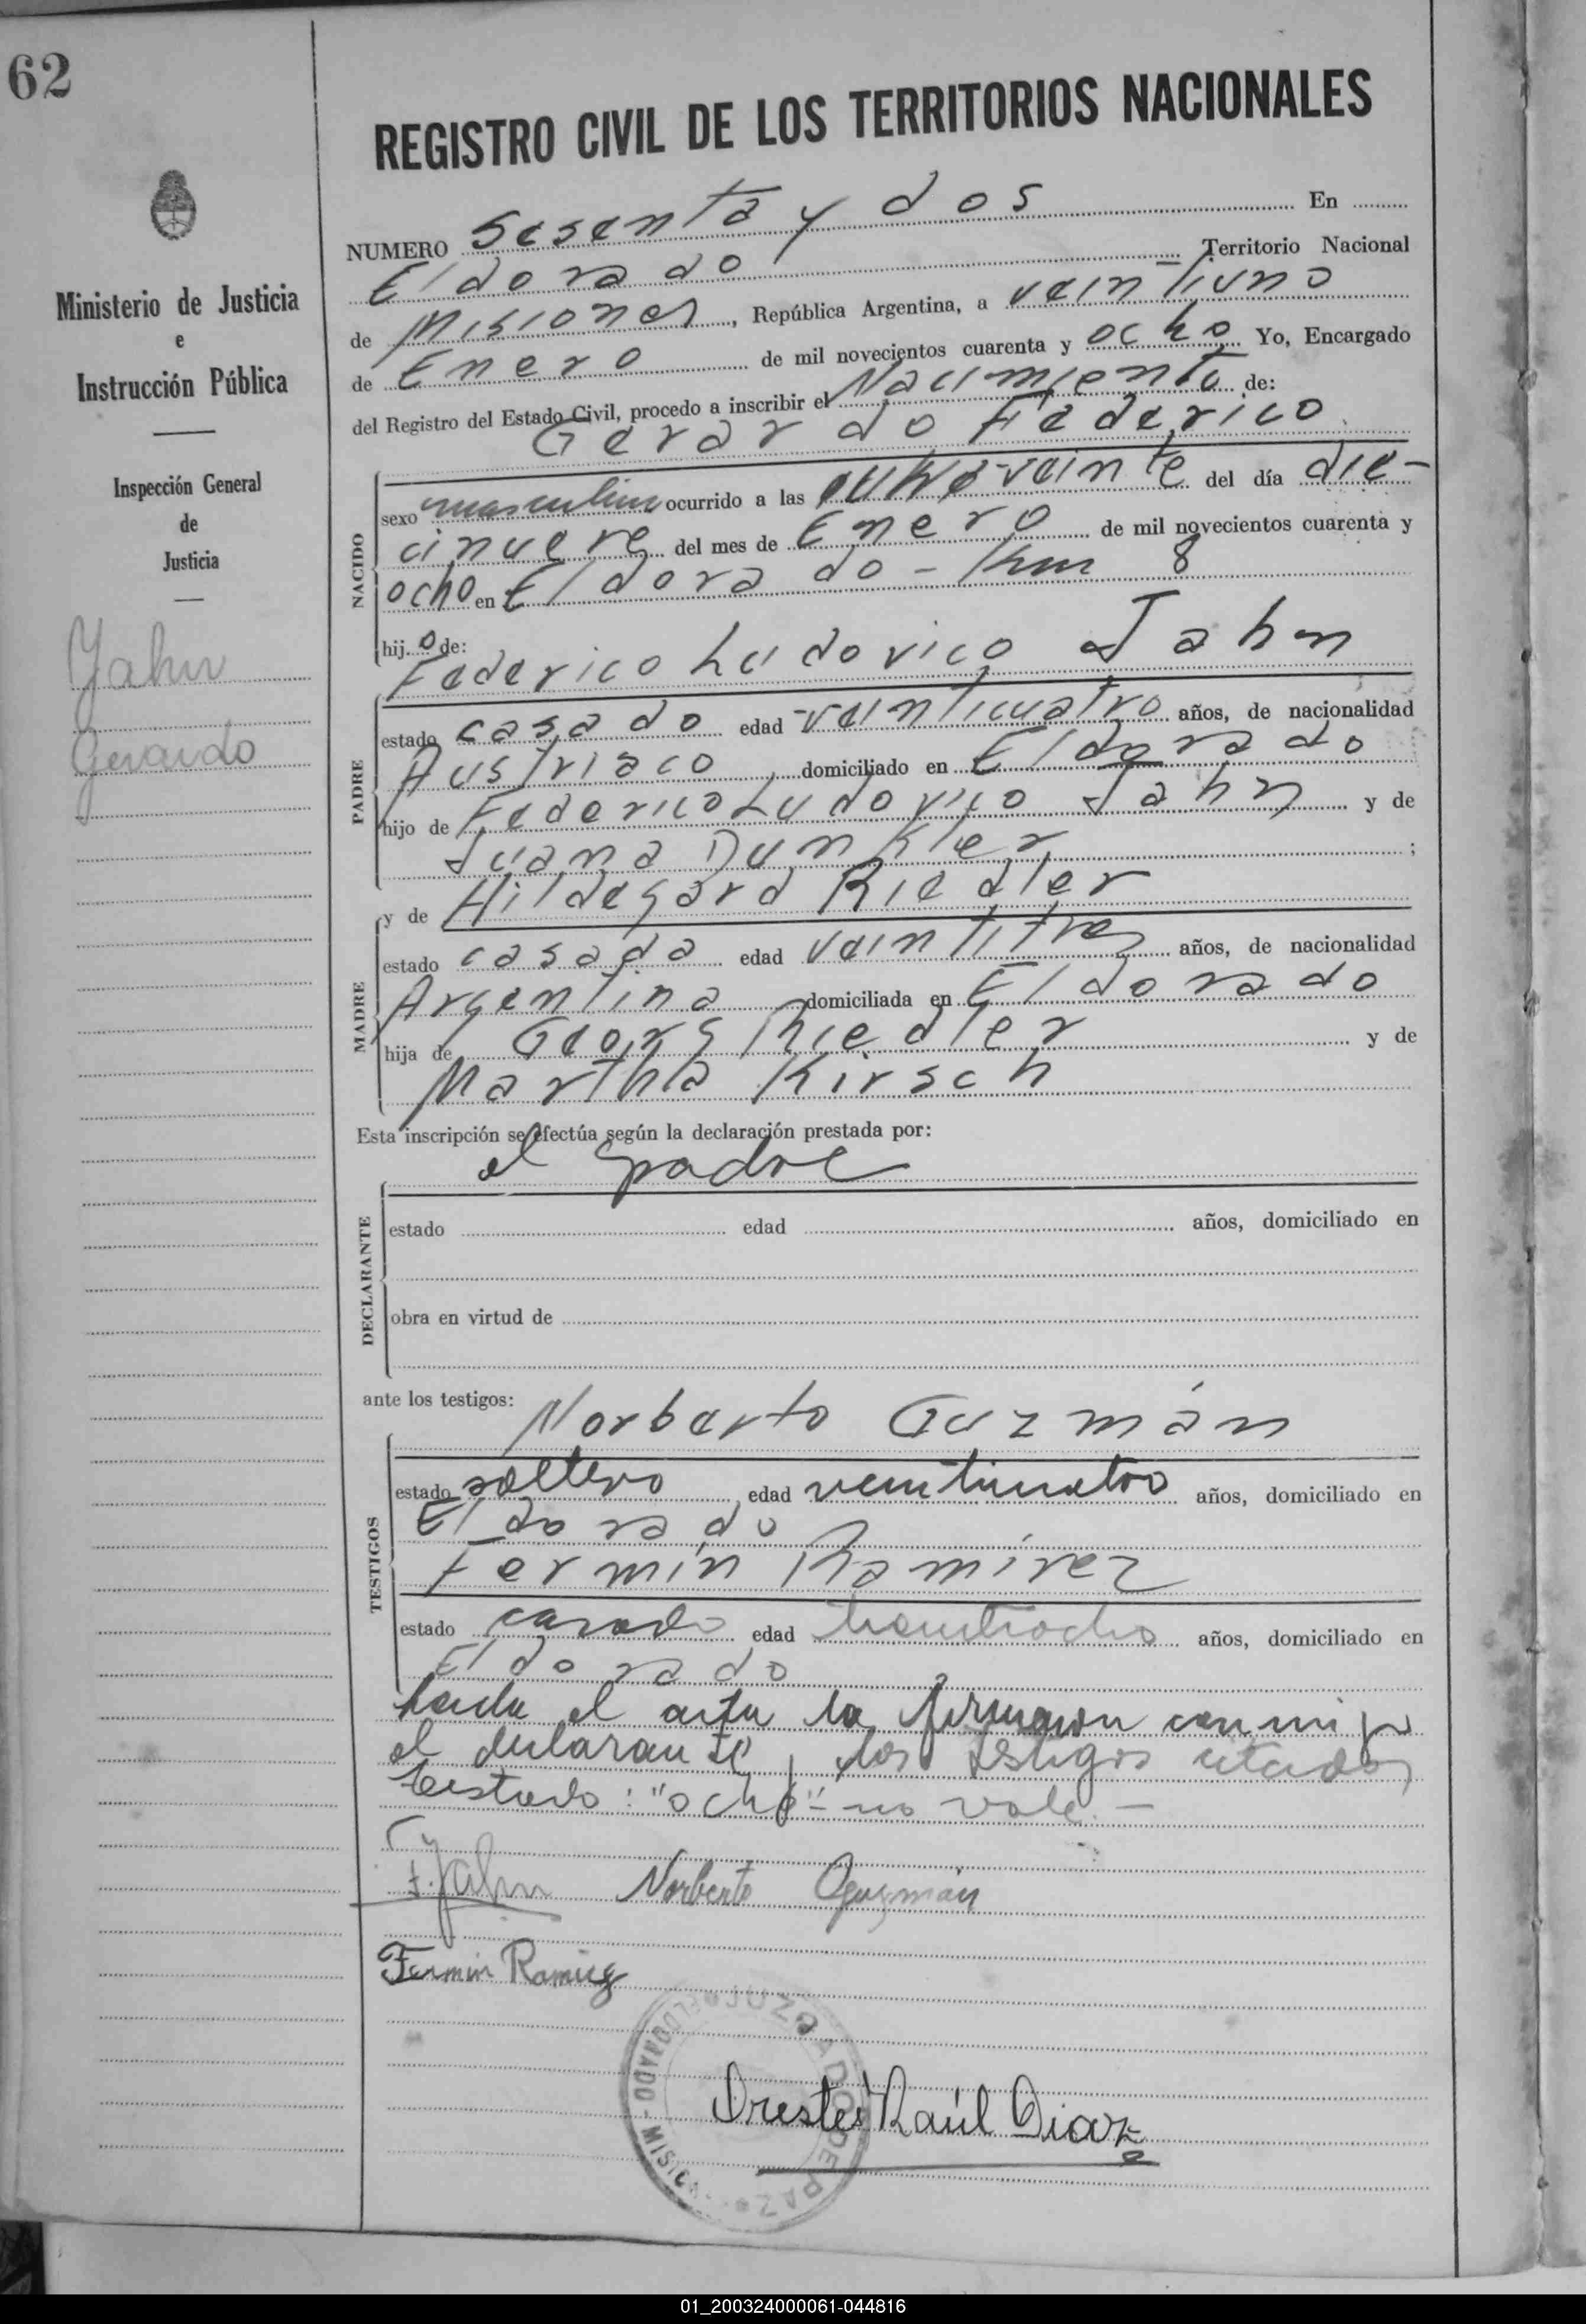 62
REGISTRO CIVIL DE LOS TERRITORIOS NACIONALES
Ministerio de Justicia
e
Instrucción Pública
Inspección General
de
Justicia
Jahn
Gerardo
NUMERO Sesenta y dos En
Eldorado Territorio Nacional
de Misiones, República Argentina, a veintiuno
de Enero de mil novecientos cuarenta y ocho Yo, Encargado
del Registro del Estado Civil, procedo a inscribir el Nacimiento de:
Gerardo Federico
NACIDO
sexo masculino ocurrido a las veinte del día die-
cinueve del mes de Enero de mil novecientos cuarenta y
ocho en Eldorado - Km 8
hijo de:
Federico Ludovico Jahn
PADRE
estado casado edad veinticuatro años, de nacionalidad
Austriaco domiciliado en Eldorado
hijo de Federico Ludovico Jahn y de
Juana Dunkler ;
y de Hildegard Riedler
MADRE
estado casada edad veintitres años, de nacionalidad
Argentina domiciliada en Eldorado
hija de Georg Riedler y de
Martha Kirsch
Esta inscripción se efectúa según la declaración prestada por:
el padre
DECLARANTE
estado edad años, domiciliado en
obra en virtud de
ante los testigos:
Norberto Guzmán
TESTIGOS
estado soltero edad veinticuatro años, domiciliado en
Eldorado
Fermín Ramírez
estado casado edad treintiocho años, domiciliado en
Eldorado
el acta la firmaron conmigo
el declarante y los testigos citados
testado: "ocho" - no vale. -
F. Jahn Norberto Guzmán
Fermin Ramirez
JUZGADO DE PAZ
ELDORADO - MISIONES
Orestes Raúl Diaz
01_200324000061-044816